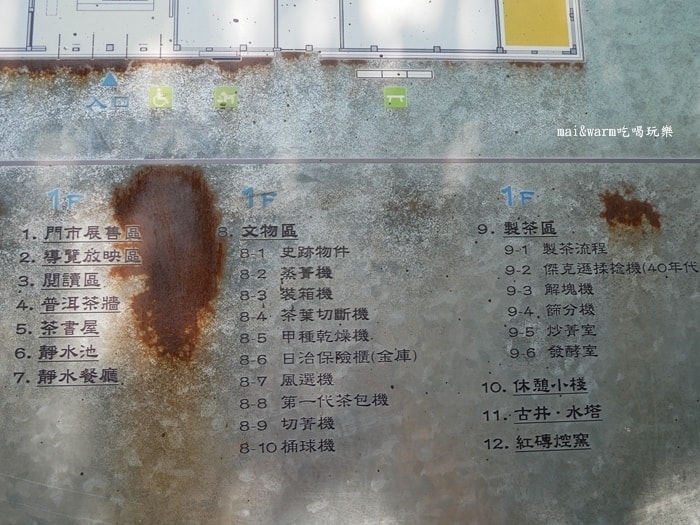 入口
mai&warm吃喝玩樂
1F
1. 門市展售區
2. 導覽放映區
3. 閱讀區
4. 普洱茶牆
5. 茶書屋
6. 靜水池
7. 靜水餐廳
1F
8. 文物區
8-1 史跡物件
8-2 蒸菁機
8-3 裝箱機
8-4 茶葉切斷機
8-5 甲種乾燥機
8-6 日治保險櫃(金庫)
8-7 風選機
8-8 第一代茶包機
8-9 切菁機
8-10 桶球機
1F
9. 製茶區
9-1 製茶流程
9-2 傑克遜揉捻機(40年代
9-3 解塊機
9-4 篩分機
9-5 炒菁室
9-6 發酵室
10. 休憩小棧
11. 古井·水塔
12. 紅磚焢窯